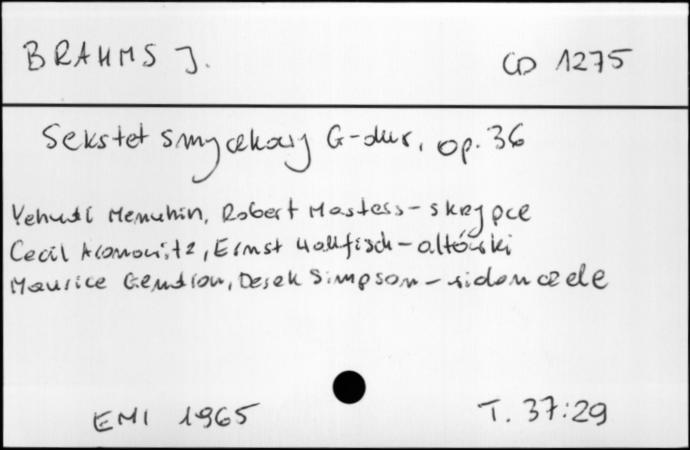 BRAHMS J.
CD 1275
Sekstet smyczkowy G-dur, op. 36
Yehudi Menuhin, Robert Masters - skrzypce
Cecil Aronowitz, Ernst Wallfisch - altówki
Maurice Gendron, Derek Simpson - wiolonczele
EMI 1965
T. 37:29